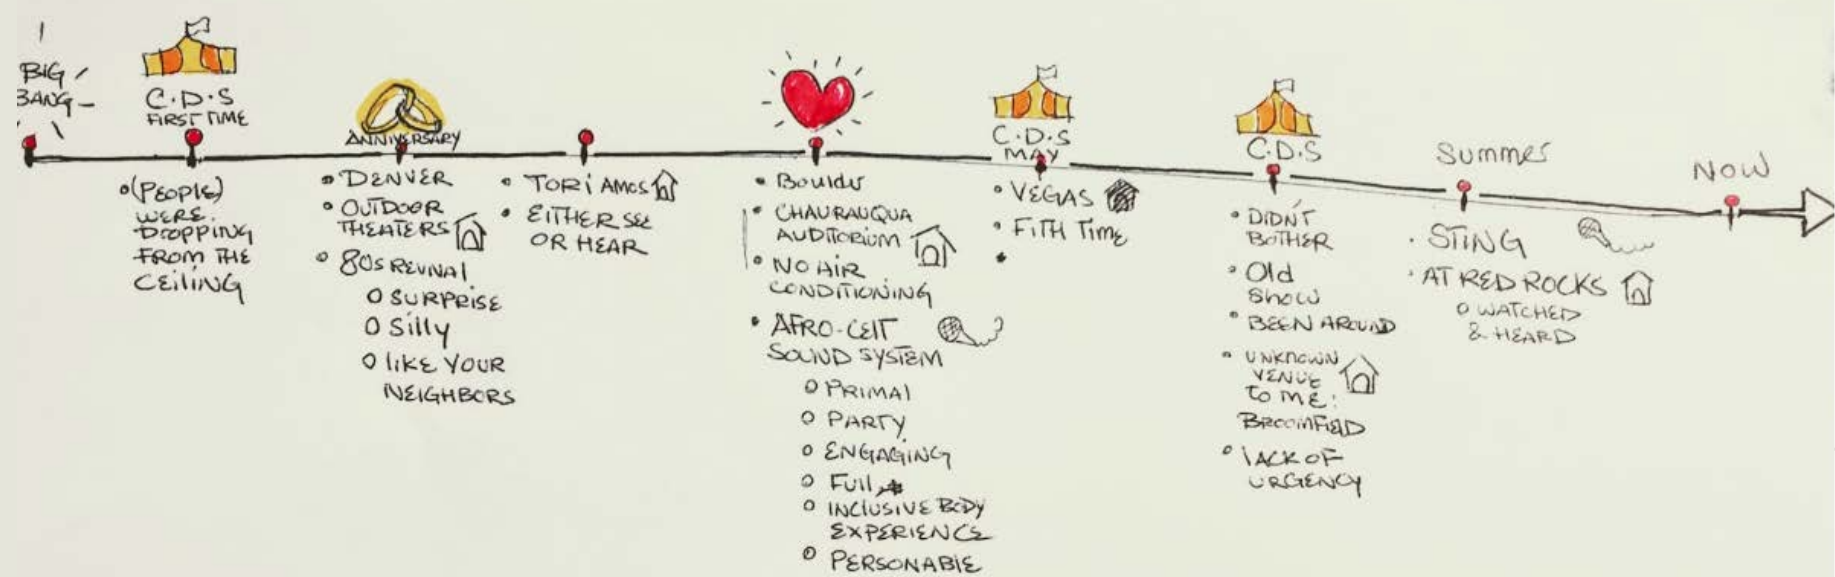 BIG
BANG
C.D.S
FIRST TIME
• (PEOPLE)
WERE
DROPPING
FROM THE
CEILING
ANNIVERSARY
• DENVER
• OUTDOOR
THEATERS
• 80S REVIVAL
O SURPRISE
O SILLY
O LIKE YOUR
NEIGHBORS
• TORI AMOS
• EITHER SEE
OR HEAR
• Boulder
• CHAURAUQUA
AUDITORIUM
• NO AIR
CONDITIONING
• AFRO-CELT
SOUND SYSTEM
O PRIMAL
O PARTY
O ENGAGING
O FULL
O INCLUSIVE BODY
EXPERIENCE
O PERSONABLE
C.D.S
MAY
• VEGAS
• FITH TIME
•
C.D.S
• DIDN'T
BOTHER
• Old
Show
• BEEN AROUND
• UNKNOWN
VENUE
TO ME:
BROOMFIELD
• LACK OF
URGENCY
Summer
• STING
• AT RED ROCKS
O WATCHED
& HEARD
NOW